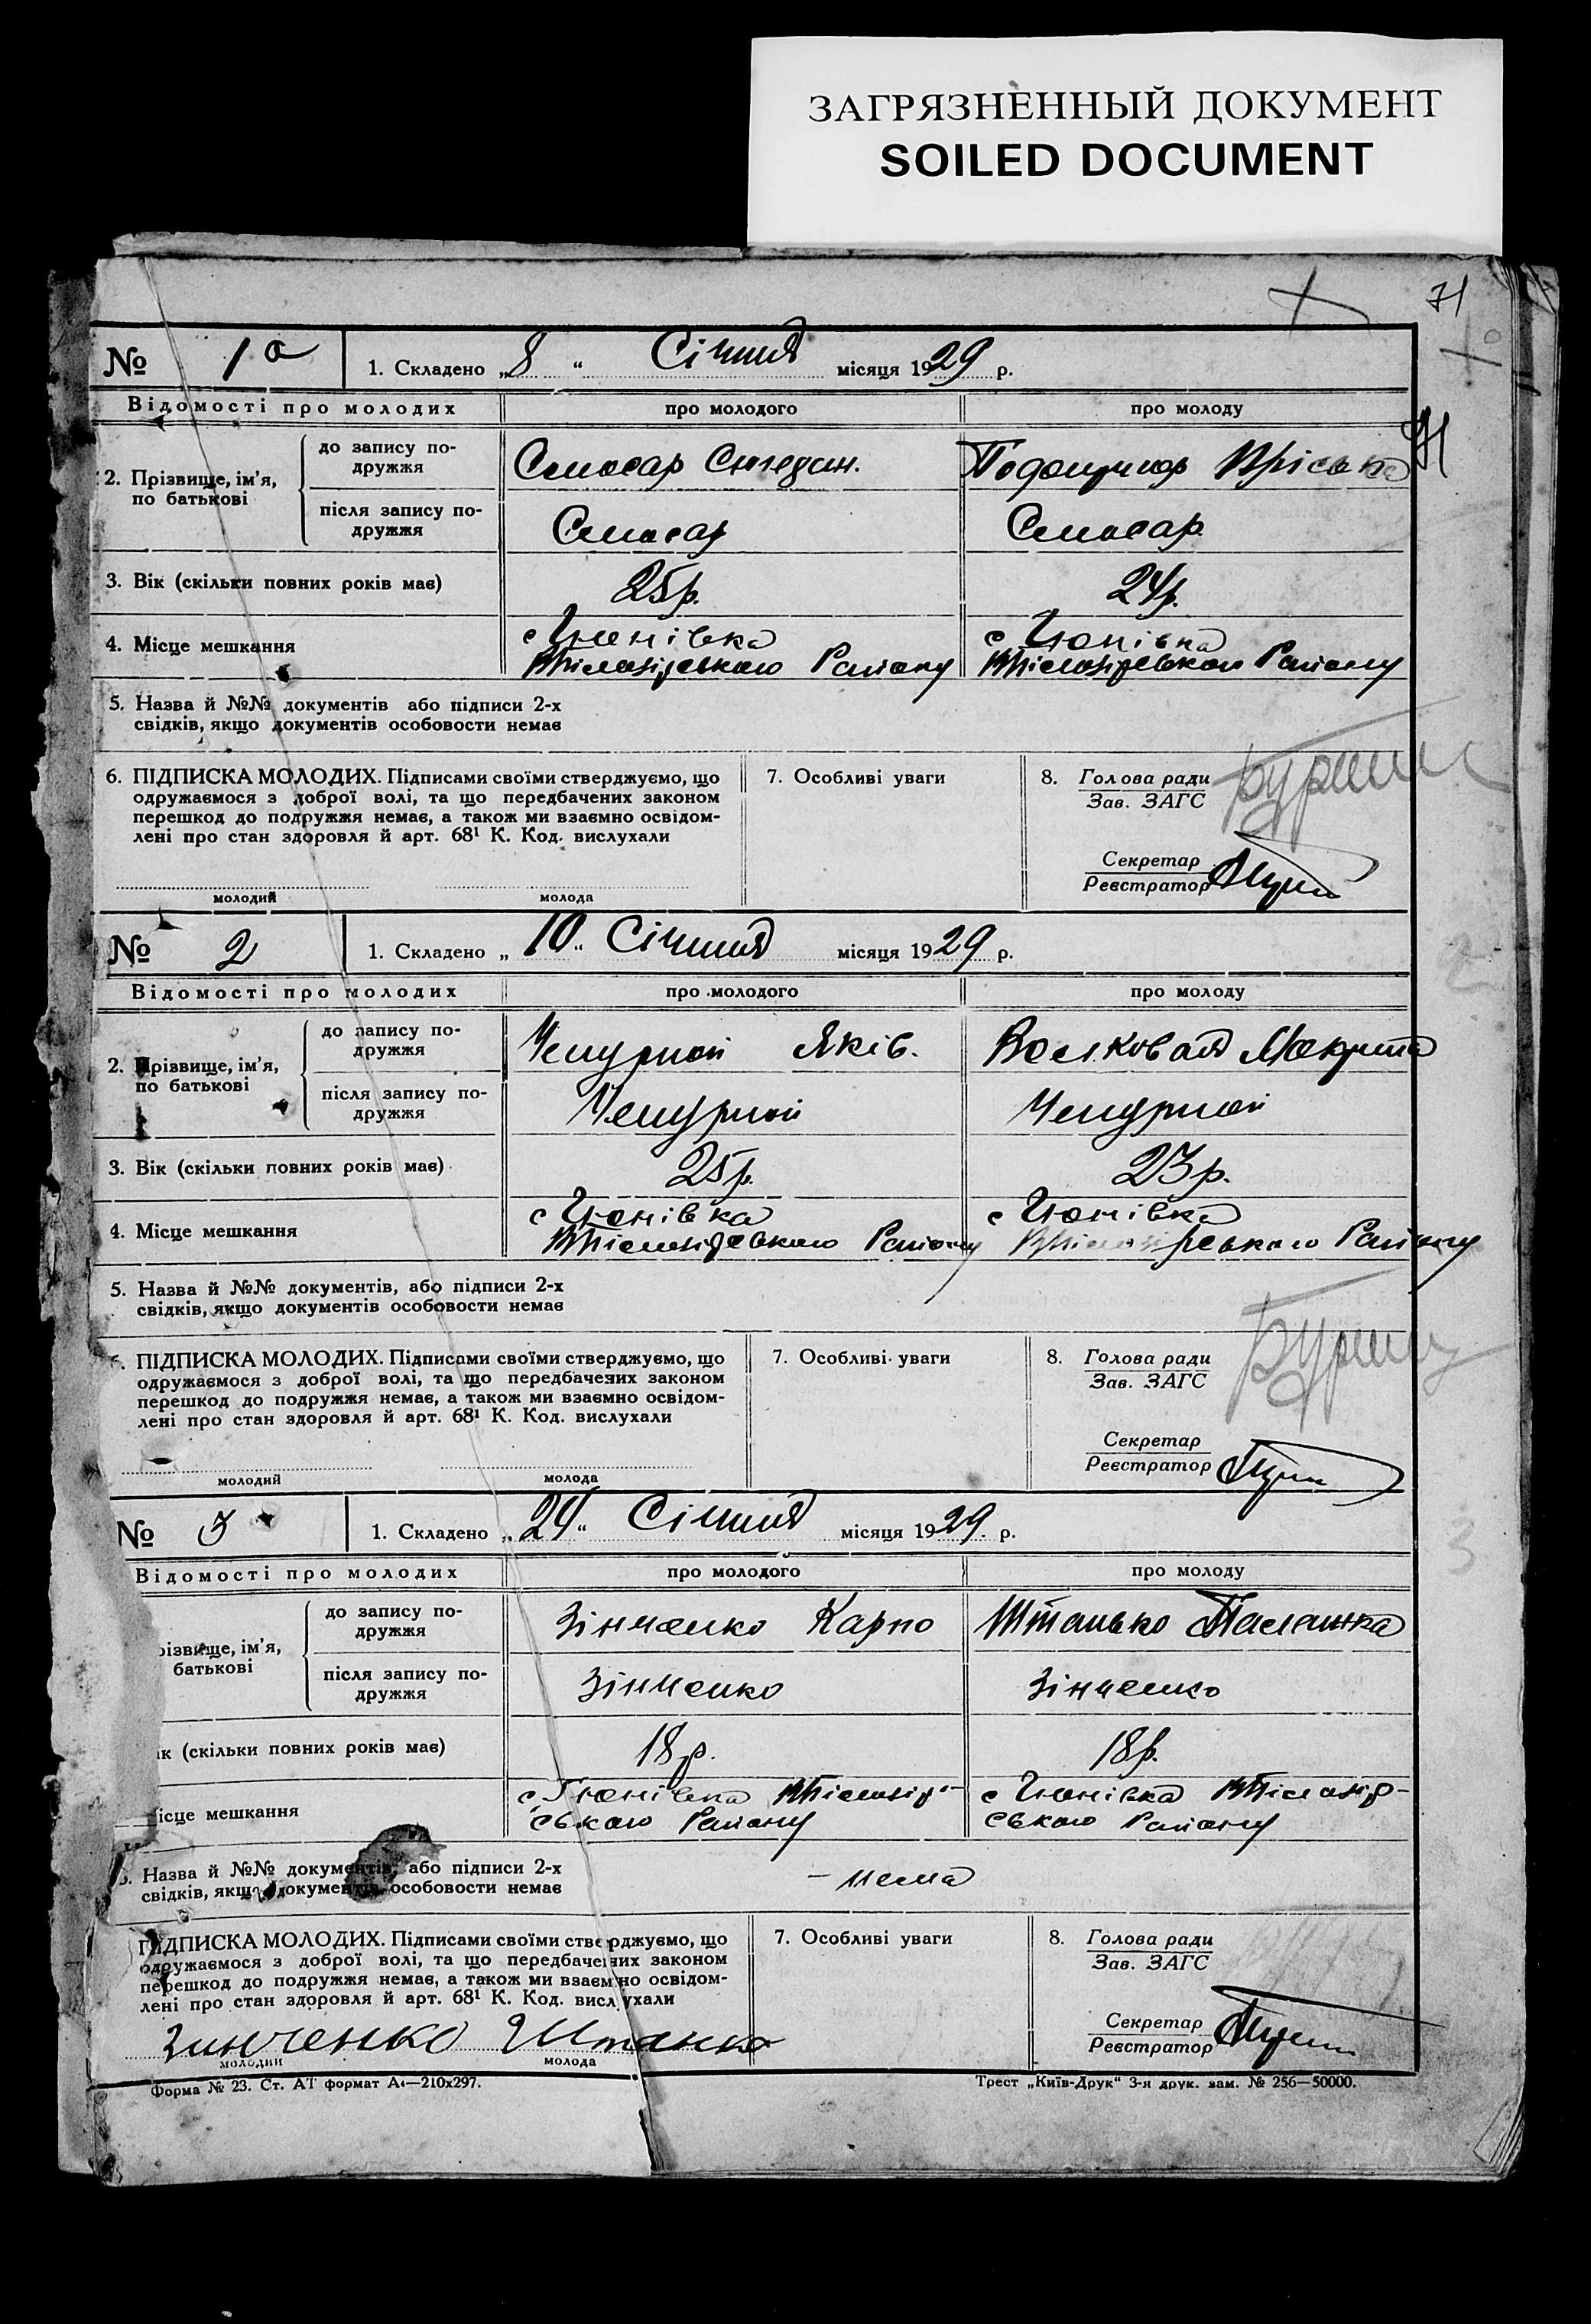 ЗАГРЯЗНЕННЫЙ ДОКУМЕНТ
SOILED DOCUMENT
71
№ 1а 1. Складено „8“ Січня місяця 1929 р.
Відомості про молодих про молодого про молоду
2. Прізвище, ім'я, по батькові
до запису подружжя Слюсар
після запису подружжя Слюсар Слюсар
3. Вік (скільки повних років має) 25р. 24р.
4. Місце мешкання с Гюнівка с Гюнівка
Району Району
5. Назва й №№ документів або підписи 2-х
свідків, якщо документів особовости немає
6. ПІДПИСКА МОЛОДИХ. Підписами своїми стверджуємо, що 7. Особливі уваги 8. Голова ради
одружаємося з доброї волі, та що передбачених законом Зав. ЗАГС
перешкод до подружжя немає, а також ми взаємно освідом-
лені про стан здоровля й арт. 68¹ К. Код. вислухали
Секретар
Реєстратор
молодий молода
№ 2 1. Складено „10“ Січня місяця 1929 р.
Відомості про молодих про молодого про молоду
2. Прізвище, ім'я, по батькові
до запису подружжя Чепурной Яків. Волковая
після запису подружжя Чепурной Чепурной
3. Вік (скільки повних років має) 25р. 23р.
4. Місце мешкання с Гюнівка с Гюнівка
Району Району
5. Назва й №№ документів, або підписи 2-х
свідків, якщо документів особовости немає
6. ПІДПИСКА МОЛОДИХ. Підписами своїми стверджуємо, що 7. Особливі уваги 8. Голова ради
одружаємося з доброї волі, та що передбачених законом Зав. ЗАГС
перешкод до подружжя немає, а також ми взаємно освідом-
лені про стан здоровля й арт. 68¹ К. Код. вислухали
Секретар
Реєстратор
молодий молода
№ 3 1. Складено „24“ Січня місяця 1929 р.
Відомості про молодих про молодого про молоду
різвище, ім'я, батькові
до запису подружжя Зінченко Карпо Штанько Палашка
після запису подружжя Зінченко Зінченко
ік (скільки повних років має) 18р. 18р.
ісце мешкання с Гюнівка с Гюнівка
ського Району ського Району
5. Назва й №№ документів, або підписи 2-х – нема
свідків, якщо документів особовости немає
ПІДПИСКА МОЛОДИХ. Підписами своїми стверджуємо, що 7. Особливі уваги 8. Голова ради
одружаємося з доброї волі, та що передбачених законом Зав. ЗАГС
перешкод до подружжя немає, а також ми взаємно освідом-
лені про стан здоровля й арт. 68¹ К. Код. вислухали
Секретар
Реєстратор
Зинченко Штанко
молодий молода
Форма № 23. Ст. АТ формат А₄—210х297. Трест „Київ-Друк“ 3-я друк. зам. № 256—50000.